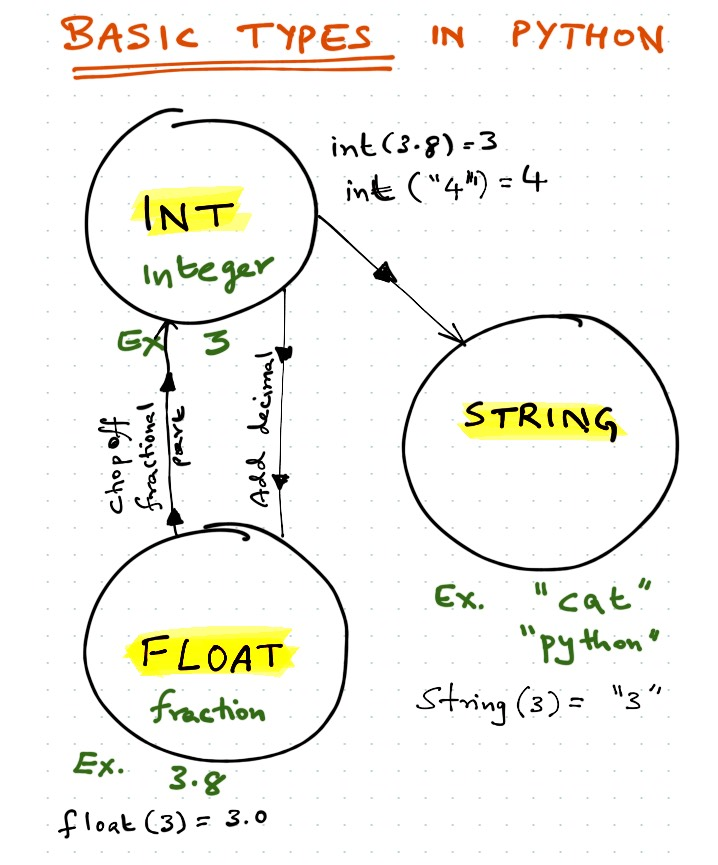 BASIC TYPES IN PYTHON
int(3.8) = 3
int ("4") = 4
INT
Integer
Ex 3
chop off
fractional
part
Add decimal
STRING
Ex. "cat"
"python"
String (3) = "3"
FLOAT
fraction
Ex. 3.8
float (3) = 3.0